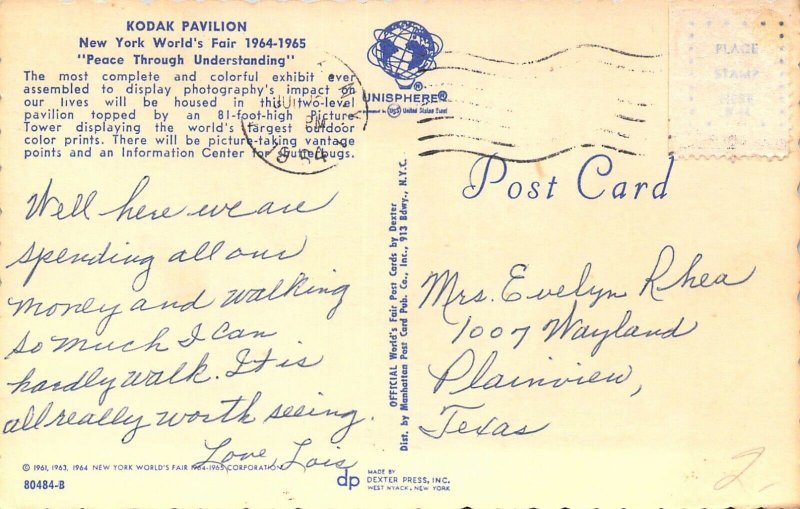 KODAK PAVILION
New York World's Fair 1964-1965
"Peace Through Understanding"
The most complete and colorful exhibit ever
assembled to display photography's impact on
our lives will be housed in this two-level
pavilion topped by an 81-foot-high Picture
Tower displaying the world's largest outdoor
color prints. There will be picture-taking vantage
points and an Information Center for shutterbugs.
Well here we are
spending all our
money and walking
so much I can
hardly walk. It is
all really worth seeing.
Love, Lois
© 1961, 1963, 1964 NEW YORK WORLD'S FAIR 1964-1965 CORPORATION
80484-B
UNISPHERE®
presented by USS United States Steel
PLACE
STAMP
HERE
Post Card
OFFICIAL World's Fair Post Cards by Dexter
Dist. by Manhattan Post Card Pub. Co., Inc., 913 Bdwy., N.Y.C.
Mrs. Evelyn Rhea
1007 Wayland
Plainview,
Texas
dp
MADE BY
DEXTER PRESS, INC.
WEST NYACK, NEW YORK
2,